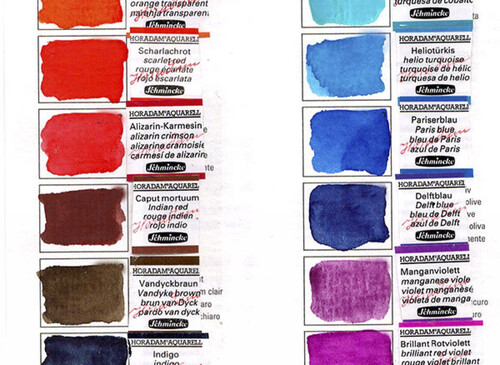 orange transparent
naranja transparen
Schmincke
HORADAM®AQUARELL
Scharlachrot
scarlet red
rouge écarlate
rojo escarlata
Schmincke
HORADAM®AQUARELL
Alizarin-Karmesin
alizarin crimson
alizarine cramoisie
carmesí de alizarin
Schmincke
HORADAM®AQUARELL
Caput mortuum
Indian red
rouge indien
rojo indio
Schmincke
HORADAM®AQUARELL
Vandyckbraun
Vandyke brown
brun van Dyck
pardo van dyck
Schmincke
HORADAM®AQUARELL
Indigo
indigo
turquesa de cobalto
Schmincke
HORADAM®AQUARELL
Heliotürkis
helio turquoise
turquoise de hélio
turquesa de helio
Schmincke
HORADAM®AQUARELL
Pariserblau
Paris blue
bleu de Paris
azul de Paris
Schmincke
HORADAM®AQUARELL
Delftblau
Delft blue
bleu de Delft
azul de Delft
Schmincke
HORADAM®AQUARELL
Manganviolett
manganese viole
violet manganèse
violeta de manga
Schmincke
HORADAM®AQUARELL
Brillant Rotviolett
brilliant red violet
rouge violet brillant